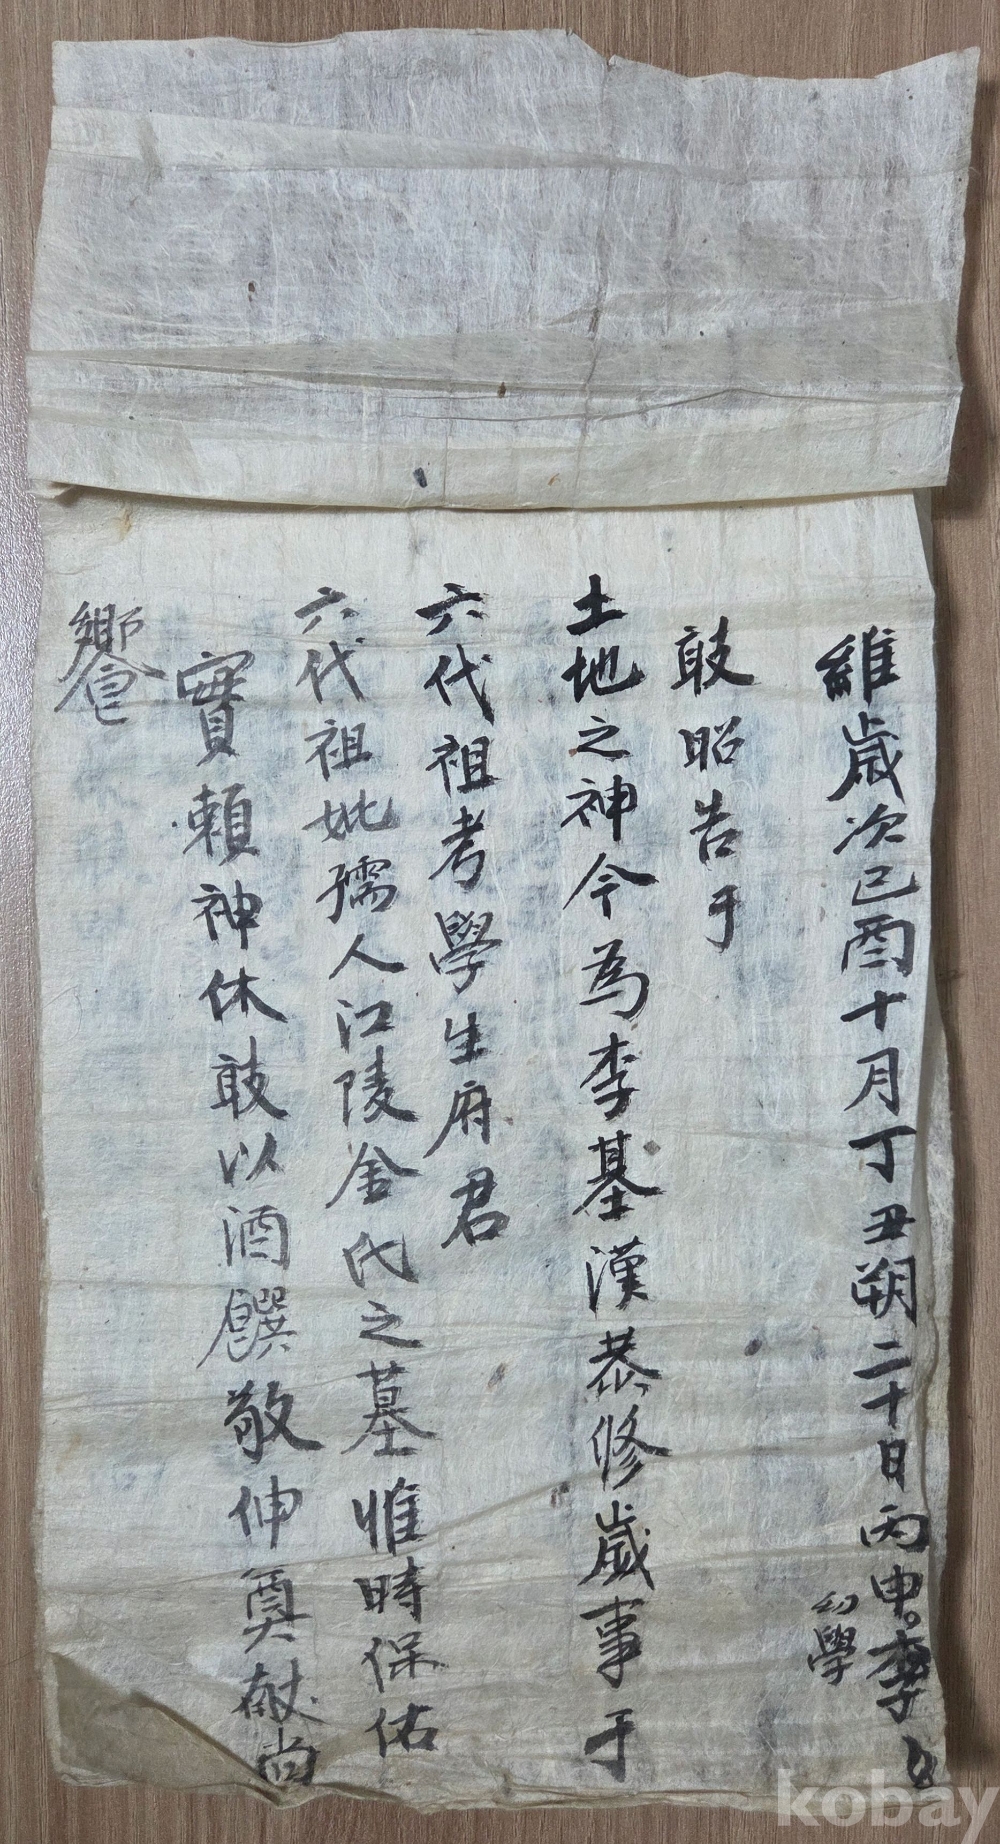 維歲次己酉十月丁丑朔二十日丙申李
幼學
敢昭告于
土地之神今為李基漢恭修歲事于
六代祖考學生府君
六代祖妣孺人江陵金氏之墓惟時保佑
實賴神休敢以酒饌敬伸奠献尚
饗
kobay